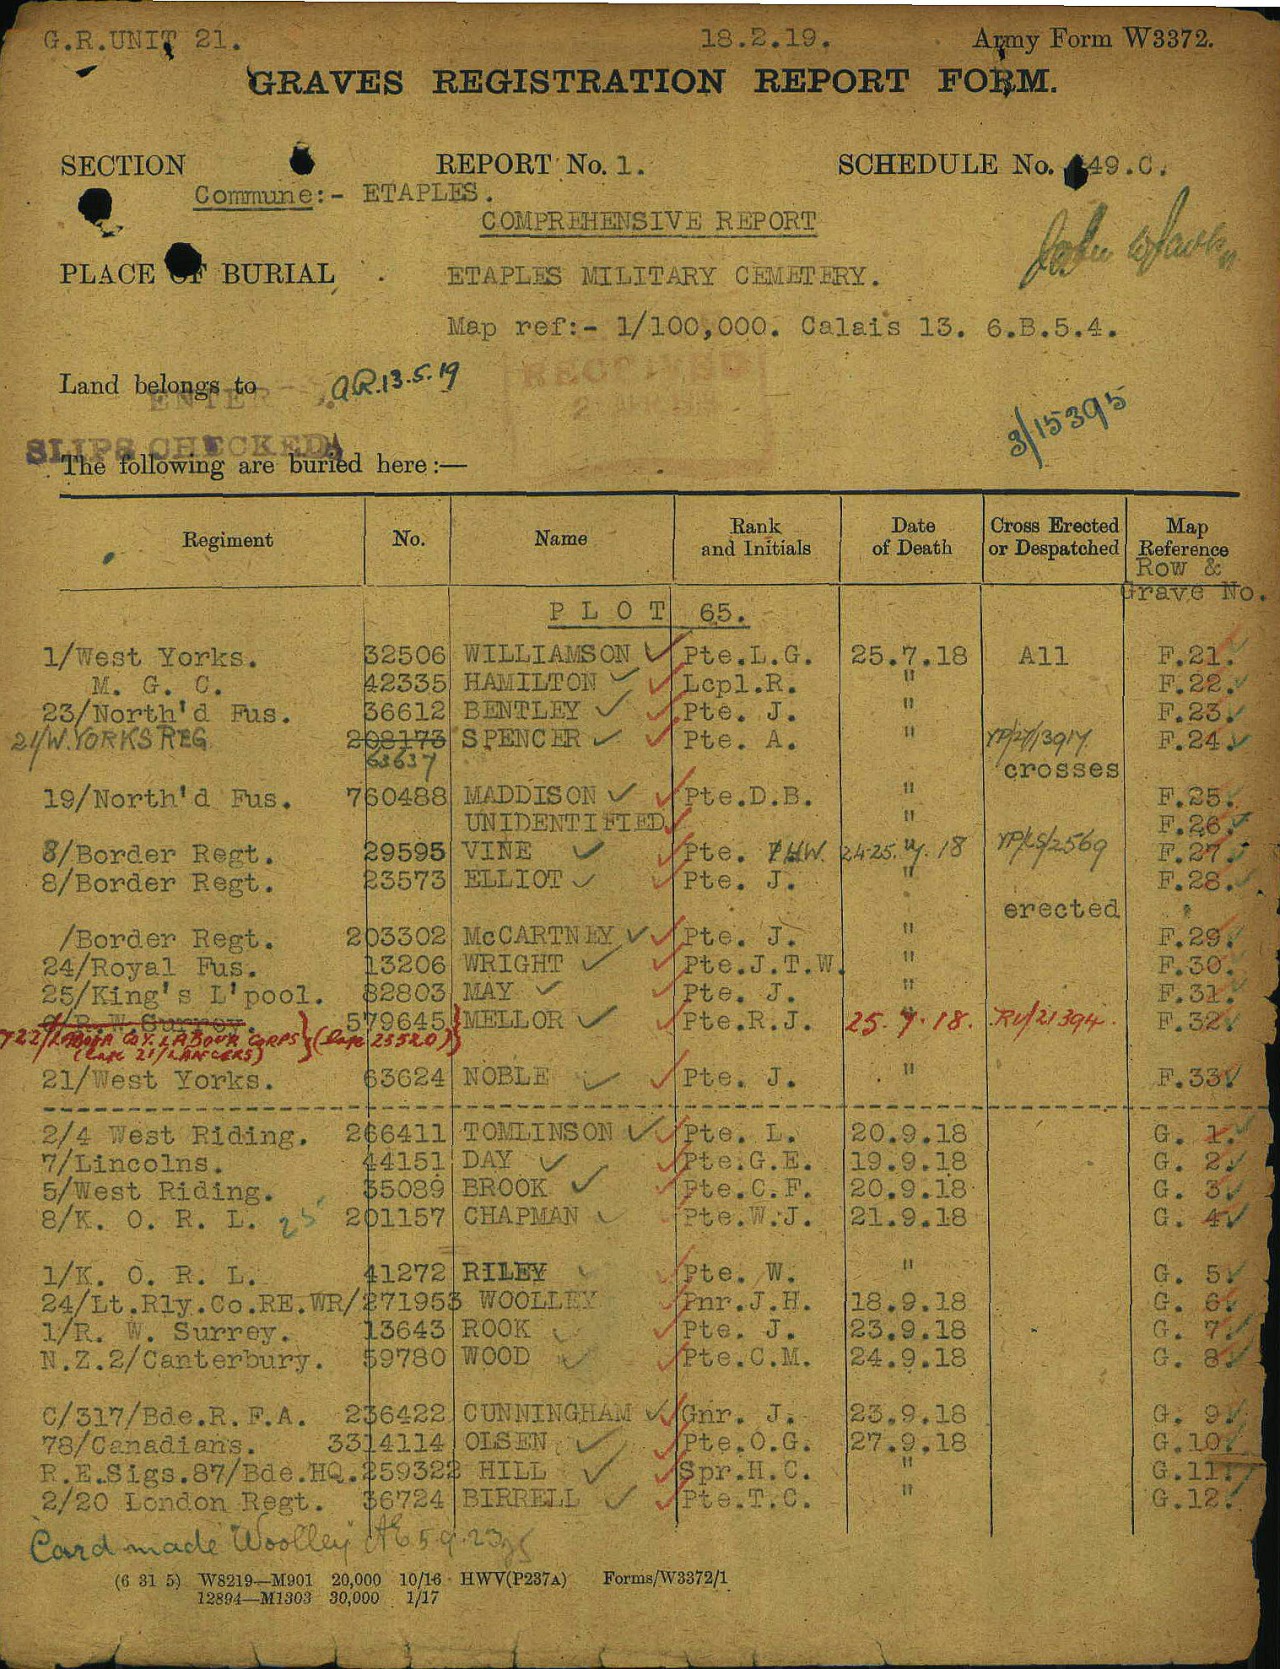 G.R.UNIT 21. 18.2.19. Army Form W3372.
GRAVES REGISTRATION REPORT FORM.
SECTION REPORT No. 1. SCHEDULE No. 49.C.
Commune:- ETAPLES.
COMPREHENSIVE REPORT
PLACE OF BURIAL . ETAPLES MILITARY CEMETERY.
Map ref:- 1/100,000. Calais 13. 6.B.5.4.
RECEIVED
Land belongs to 13.5.19
ENTER
3/15395
SLIPS CHECKED
The following are buried here:—
Regiment No. Name Rank and Initials Date of Death Cross Erected or Despatched Map Reference
Row & Grave No.
PLOT 65.
1/West Yorks. 32506 WILLIAMSON Pte.L.G. 25.7.18 All F.21.
M. G. C. 42335 HAMILTON Lcpl.R. " F.22.
23/North'd Fus. 36612 BENTLEY Pte. J. " F.23.
21/W.YORKS REG 208173 SPENCER Pte. A. " F.24.
63637 crosses
19/North'd Fus. 760488 MADDISON Pte.D.B. " F.25.
UNIDENTIFIED " F.26.
8/Border Regt. 29595 VINE Pte. H.W. 24-25.7.18 F.27.
8/Border Regt. 23573 ELLIOT Pte. J. " F.28.
erected
/Border Regt. 203302 McCARTNEY Pte. J. " F.29.
24/Royal Fus. 13206 WRIGHT Pte.J.T.W. " F.30.
25/King's L'pool. 82803 MAY Pte. J. " F.31.
R.W.Surrey. 579645 MELLOR Pte.R.J. 25.7.18. R11/21394 F.32.
722/LABOUR COY. LABOUR CORPS (late 25520)
(late 21/LANCERS)
21/West Yorks. 63624 NOBLE Pte. J. " F.33
2/4 West Riding. 266411 TOMLINSON Pte. L. 20.9.18 G. 1.
7/Lincolns. 44151 DAY Pte.G.E. 19.9.18 G. 2.
5/West Riding. 35089 BROOK Pte.C.F. 20.9.18 G. 3.
8/K. O. R. L. 25 201157 CHAPMAN Pte.W.J. 21.9.18 G. 4.
1/K. O. R. L. 41272 RILEY Pte. W. " G. 5.
24/Lt.Rly.Co.RE.WR/271953 WOOLLEY Pnr.J.H. 18.9.18 G. 6.
1/R. W. Surrey. 13643 ROOK Pte. J. 23.9.18 G. 7.
N.Z.2/Canterbury. 59780 WOOD Pte.C.M. 24.9.18 G. 8.
C/317/Bde.R.F.A. 236422 CUNNINGHAM Gnr. J. 23.9.18 G. 9.
78/Canadians. 3314114 OLSEN Pte.O.G. 27.9.18 G.10.
R.E.Sigs.87/Bde.HQ.259322 HILL Spr.H.C. " G.11.
2/20 London Regt. 36724 BIRRELL Pte.T.C. " G.12.
Card made "Woolley" 5.9.23
(6 31 5) W8219—M901 20,000 10/16 HWV(P237A) Forms/W3372/1
12894—M1303 30,000 1/17